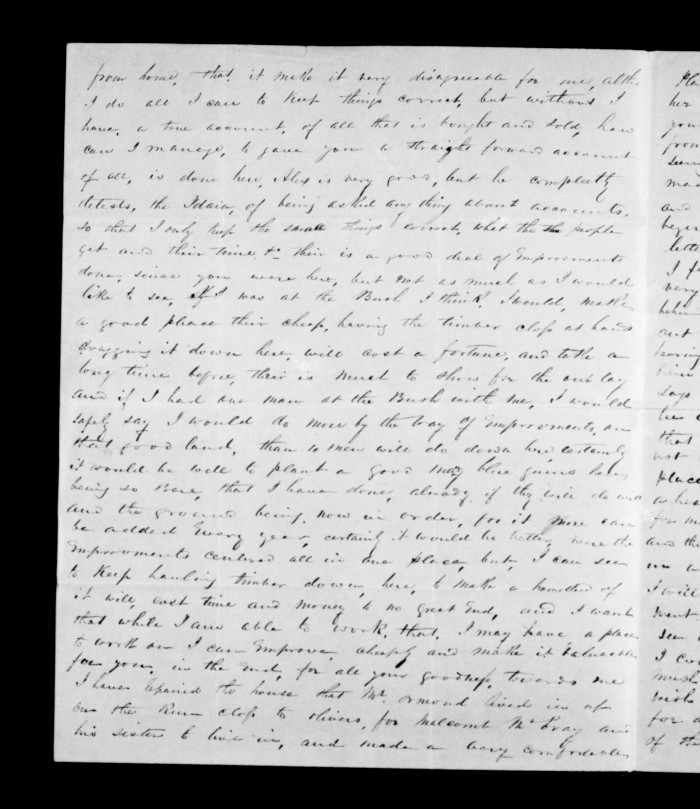 from home, that, it make it very disagreeable for me, altho
I do all I can to Keep things correct, but without I
have, a true account, of all that is bought and sold, how
can I manage, to gave you a straight forward account
of all, is done here, Alex is very good, but he completly
detests, the Idaia, of being asked any thing about accounts,
so that I only keep the small things correct, what the people
get and their time &c their is a good deal of Improvements
done, since you were here, but not as much as I would
like to see, If I was at the Bush I think, I would, make
a good please their cheap, having the timber close at hand
dragging it down here, will cost a fortune, and take a
long time before, their is much to show for the out lay
and if I had one man at the Bush with me, I would
safely say I would do more by the way of Improvements, on
that good land, than 10 men will do down here certainly
it would be well to plant a good many blue gums here,
being so Bare, that I have done, already, if they will do well
and the ground being, now in order, for it more can
be added Every year, certainly it would be better, were the
Improvements centered all in one place, but, I can see
to Keep hauling timber down, here, to make a homested of
it will, cost time and money to no great End, and I want
that while I am able to work, that, I may have a place
to work on I can Improve, cheaply and make it valueable
for you, in the End, for all your goodness, towards me
I have repaired the house that Mr Ormond lived in up
on the Run close to olivers, for Malcomb McCray and
his sister to live in, and made a very comfortable
Pla
her
you
from
seen
ma
and
beger
letter
I f
very
been
out
hearing
him
says
that
not
place
as he
for m
and th
on a
I will
went
see
I Co
much
wish
for a
of the